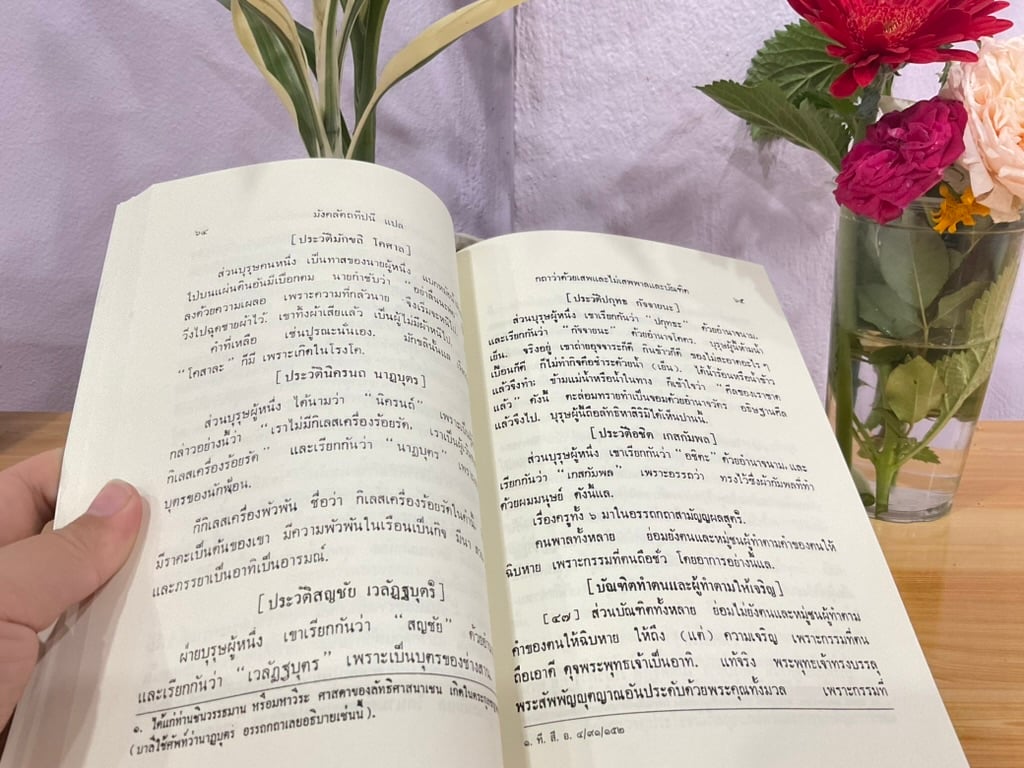 ๖๔
มังคลัตถทีปนี แปล
[ประวัติมักขลิ โคศาล]
ส่วนบุรุษคนหนึ่ง เป็นทาสของนายผู้หนึ่ง แบกหม้อ
ไปบนแผ่นดินอันมีเปือกตม นายกำชับว่า อย่าลื่น
ลงด้วยความเผลอ เพราะความที่กลัวนาย จึงเริ่มจะหนีไป
วิ่งไปฉุดชายผ้าไว้. เขาทิ้งผ้าเสียแล้ว เป็นผู้ไม่มีผ้าหนีไป.
คำที่เหลือ เช่นปูรณะนั่นเอง. มักขลินั้นแล
“โคสาละ” ก็มี เพราะเกิดในโรงโค.
[ประวัตินิครนถ นาฏบุตร]
ส่วนบุรุษผู้หนึ่ง ได้นามว่า “นิครนถ์” เพราะ
กล่าวอย่างนี้ว่า “เราไม่มีกิเลสเครื่องร้อยรัด. เราเป็นผู้เว้น
กิเลสเครื่องร้อยรัด” และเรียกกันว่า “นาฏบุตร” เพราะ
บุตรของนักฟ้อน.
ก็กิเลสเครื่องพัวพัน ชื่อว่า กิเลสเครื่องร้อยรัดในคำนี้
มีราคะเป็นต้นของเขา มีความพัวพันในเรือนเป็นกิจ มีนา สวน
และภรรยาเป็นอาทิเป็นอารมณ์.
[ประวัติสญชัย เวลัฏฐบุตร]
ฝ่ายบุรุษผู้หนึ่ง เขาเรียกกันว่า “สญชัย” ด้วยอำนาจ
และเรียกกันว่า “เวลัฏฐบุตร” เพราะเป็นบุตรของช่างสาน
๑. ได้แก่ท่านชินวรรธมาน หรือมหาวีระ ศาสดาของลัทธิศาสนาเชน เกิดในตระกูล
(บาลีใช้ศัพท์ว่านาฏบุตร อรรถกถาเลยอธิบายเช่นนี้).
กถาว่าด้วยเสพและไม่เสพพาลและบัณฑิต
๖๕
[ประวัติปกุทธ กัจจายนะ]
ส่วนบุรุษผู้หนึ่ง เขาเรียกกันว่า “ปกุทธะ” ด้วยอำนาจนาม,
และเรียกกันว่า “กัจจายนะ” ด้วยอำนาจโคตร. บุรุษผู้นี้ห้ามน้ำ
เย็น. จริงอยู่ เขาถ่ายอุจจาระก็ดี กินข้าวก็ดี ของไม่สะอาดอะไร ๆ
เปื้อนก็ดี ก็ไม่ทำกิจคือชำระด้วยน้ำ (เย็น). ได้น้ำร้อนหรือน้ำข้าว
แล้วจึงทำ. ข้ามแม่น้ำหรือน้ำในทาง ก็เข้าใจว่า “ศีลของเราขาด
แล้ว” ดังนี้ ตะล่อมทรายทำเป็นจอมด้วยอำนาจวัตร อธิษฐานศีล
แล้วจึงไป. บุรุษผู้นี้ถือลัทธิหาสิริมิได้เห็นปานนี้.
[ประวัติอชิต เกสกัมพล]
ส่วนบุรุษผู้หนึ่ง เขาเรียกกันว่า “อชิตะ” ด้วยอำนาจนาม, และ
เรียกกันว่า “เกสกัมพล” เพราะอรรถว่า ทรงไว้ซึ่งผ้ากัมพลที่ทำ
ด้วยผมมนุษย์ ดังนี้แล.
เรื่องครูทั้ง ๖ มาในอรรถกถาสามัญญผลสูตร๑.
คนพาลทั้งหลาย ย่อมยังตนและหมู่ชนผู้ทำตามคำของตนให้
ฉิบหาย เพราะกรรมที่ตนถือชั่ว โดยอาการอย่างนี้แล.
[บัณฑิตทำตนและผู้ทำตามให้เจริญ]
[๔๗] ส่วนบัณฑิตทั้งหลาย ย่อมไม่ยังตนและหมู่ชนผู้ทำตาม
คำของตนให้ฉิบหาย ให้ถึง (แต่) ความเจริญ เพราะกรรมที่ตน
ถือเอาดี ดุจพระพุทธเจ้าเป็นอาทิ. แท้จริง พระพุทธเจ้าทรงบรรลุ
พระสัพพัญญุตญาณอันประดับด้วยพระคุณทั้งมวล เพราะกรรมที่
๑. ที. สี. อ. ๔/๙๑/๑๕๒